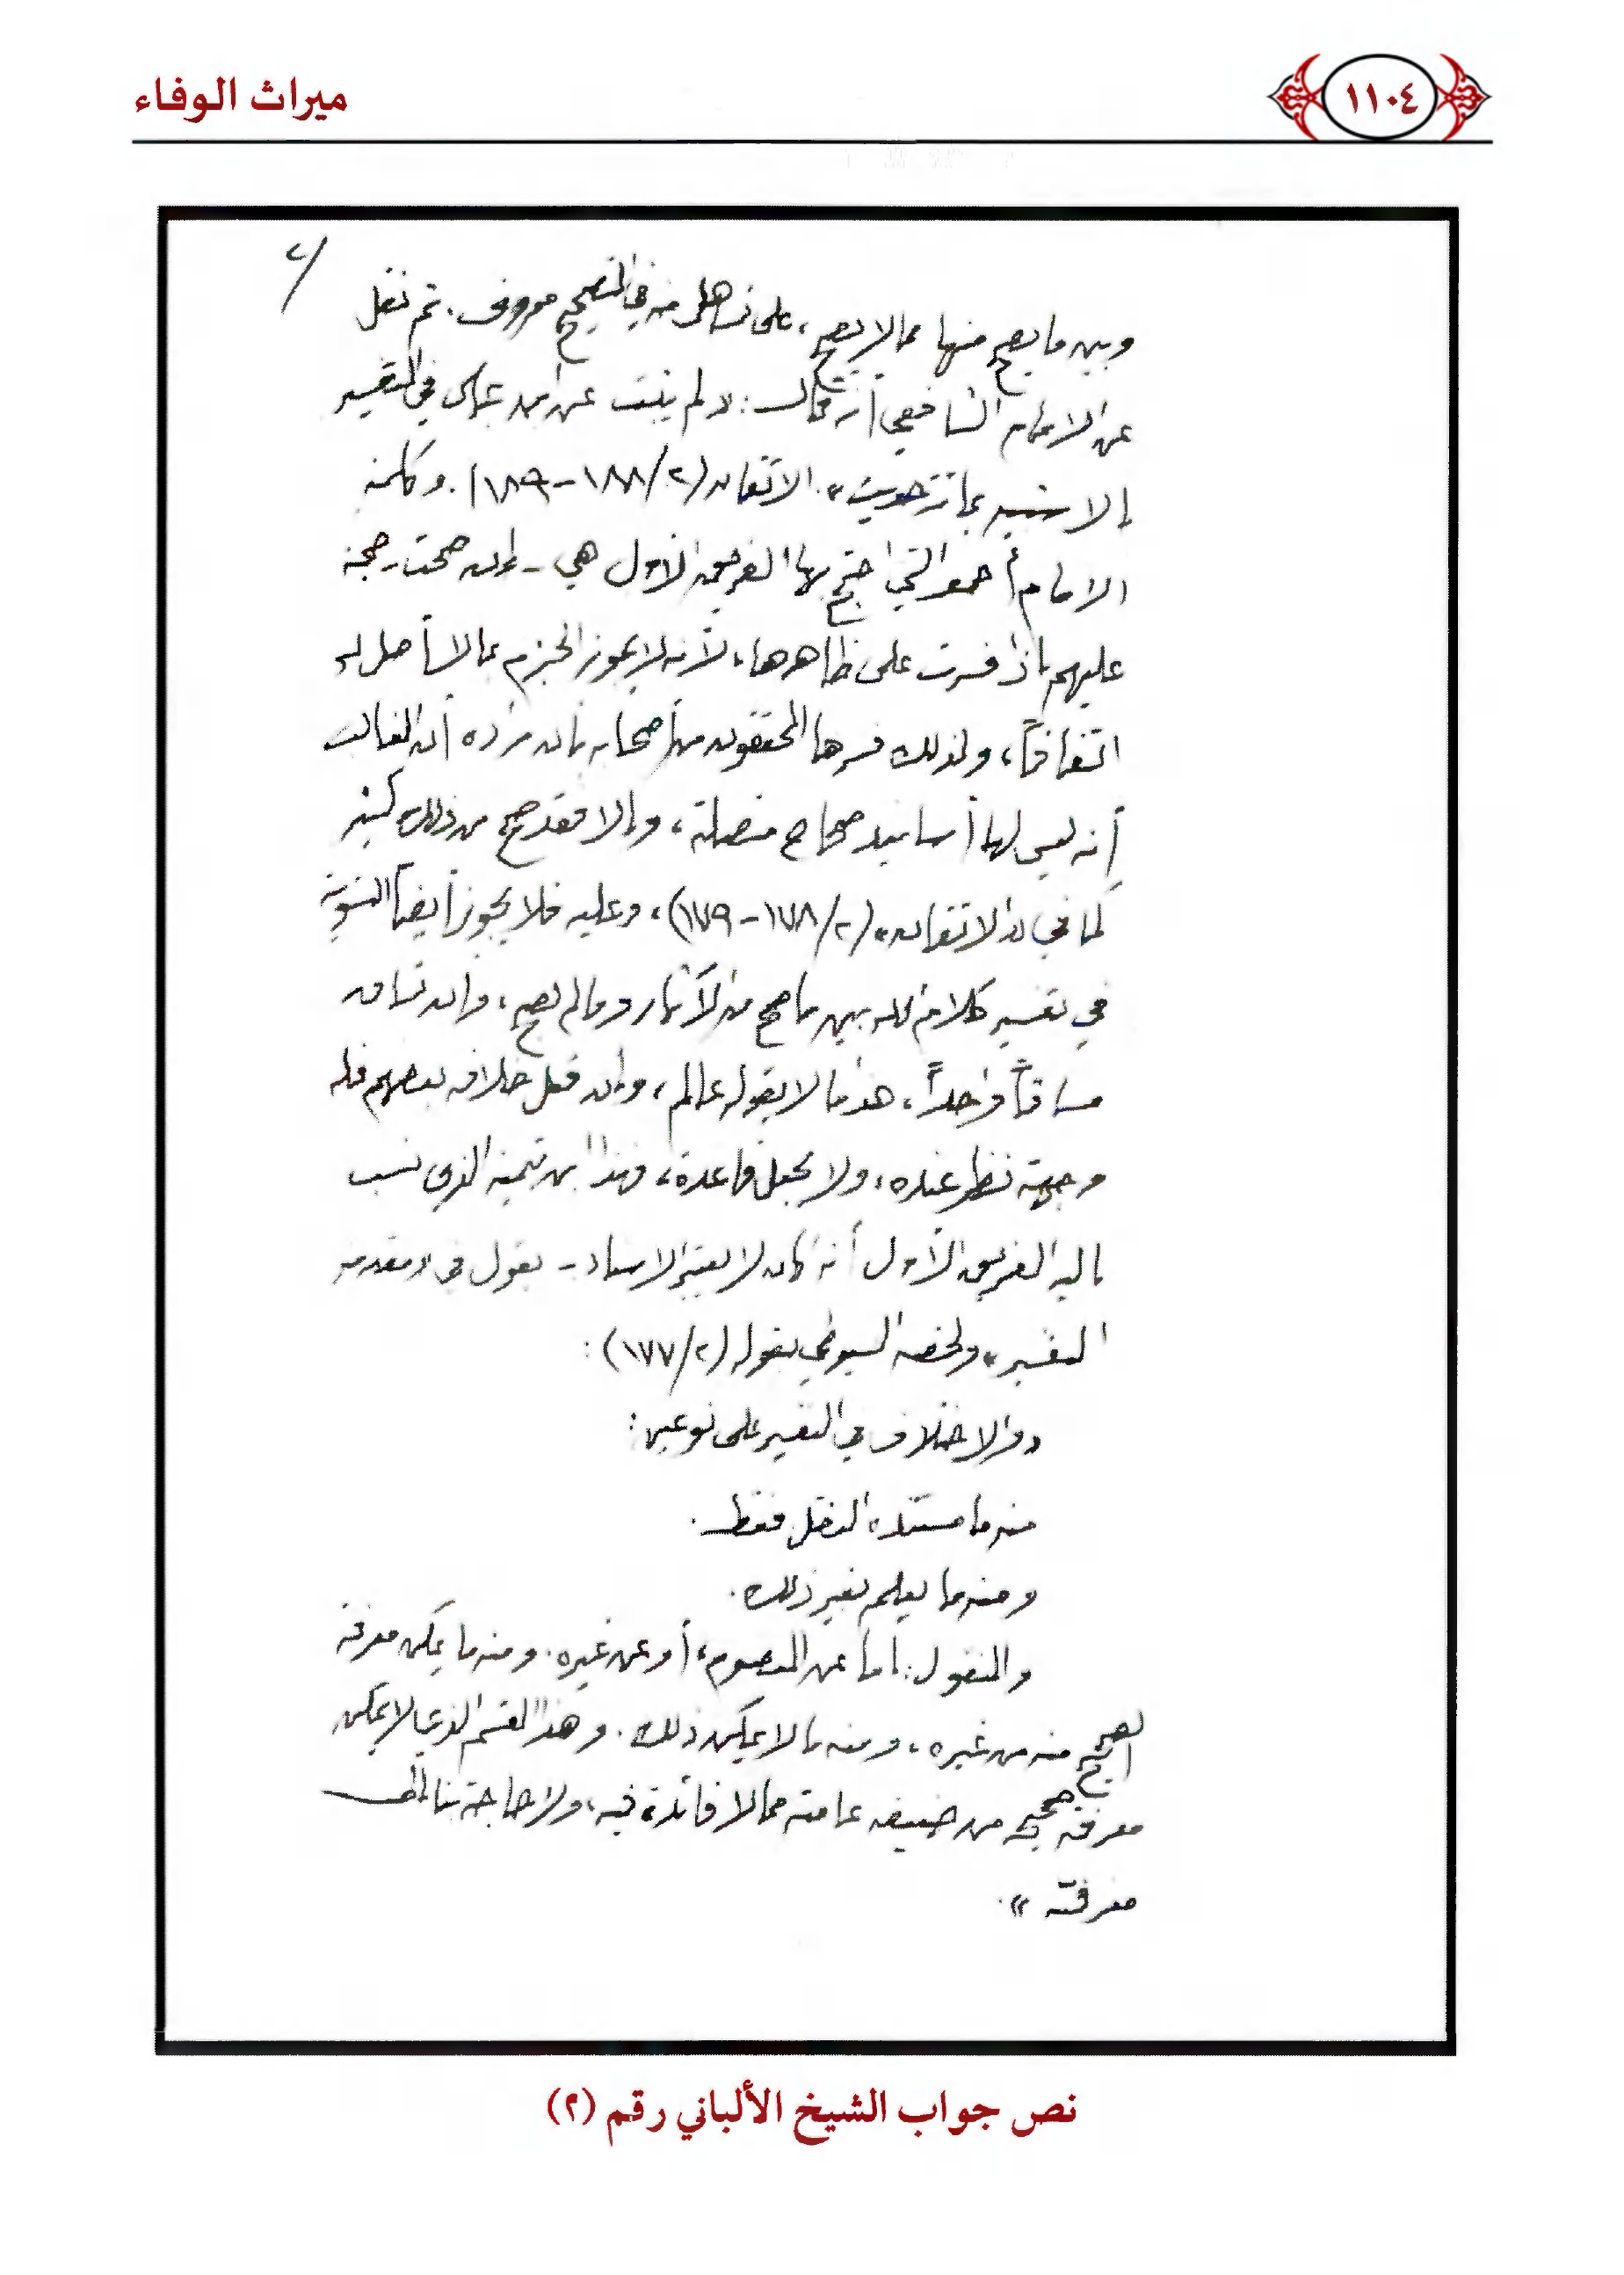 ميراث الوفاء
١١٠٤
٢/
وبين ما يصح منها مما لا يصح، على تساهل منه في التصحيح معروف. ثم نقل
عن الامام الشافعي أنه قال: «لم يثبت عن ابن عباس في التفسير
إلا شبيه بمائة حديث». الاتقان (٢/ ١٨٨-١٨٩). وكلمة
الامام أحمد التي احتج بها الفريق الأول هي - إن صحت - حجة
عليهم إذا فسرت على ظاهرها، لأنه لا يجوز الجزم بما لا أصل له
اتفاقاً، ولذلك فسرها المحققون من أصحابه بأن مراده أن الغالب
أنه ليس لها أسانيد صحاح متصلة، وإلا فقد صح من ذلك كثير
كما في «الاتقان» (٢/ ١٧٨-١٧٩)، وعليه فلا يجوز أيضاً التسوية
في تفسير كلام الله بين ما صح من الآثار وما لم يصح، وأن تساق
مساقاً واحداً، هذا ما لا يقوله عالم، وإن فعل خلافه بعضهم فله
وجهة نظر عنده، ولا يجعل قاعدة، فهذا ابن تيمية الذي نسب
إليه الفريق الأول أنه كان لا يعتبر الاسناد - يقول في «مقدمة
التفسير» ولخصه السيوطي بقوله (٢/ ١٧٧):
«والاختلاف في التفسير على نوعين:
منه ما مستنده النقل فقط.
ومنه ما يعلم بغير ذلك.
والمنقول: إما عن المعصوم، أو عن غيره. ومنه ما يمكن معرفة
الصحيح منه من غيره، ومنه ما لا يمكن ذلك. وهذا القسم الذي لا يمكن
معرفة صحيحه من ضعيفه عامته مما لا فائدة فيه، ولا حاجة بنا إلى
معرفته».
نص جواب الشيخ الألباني رقم (٢)